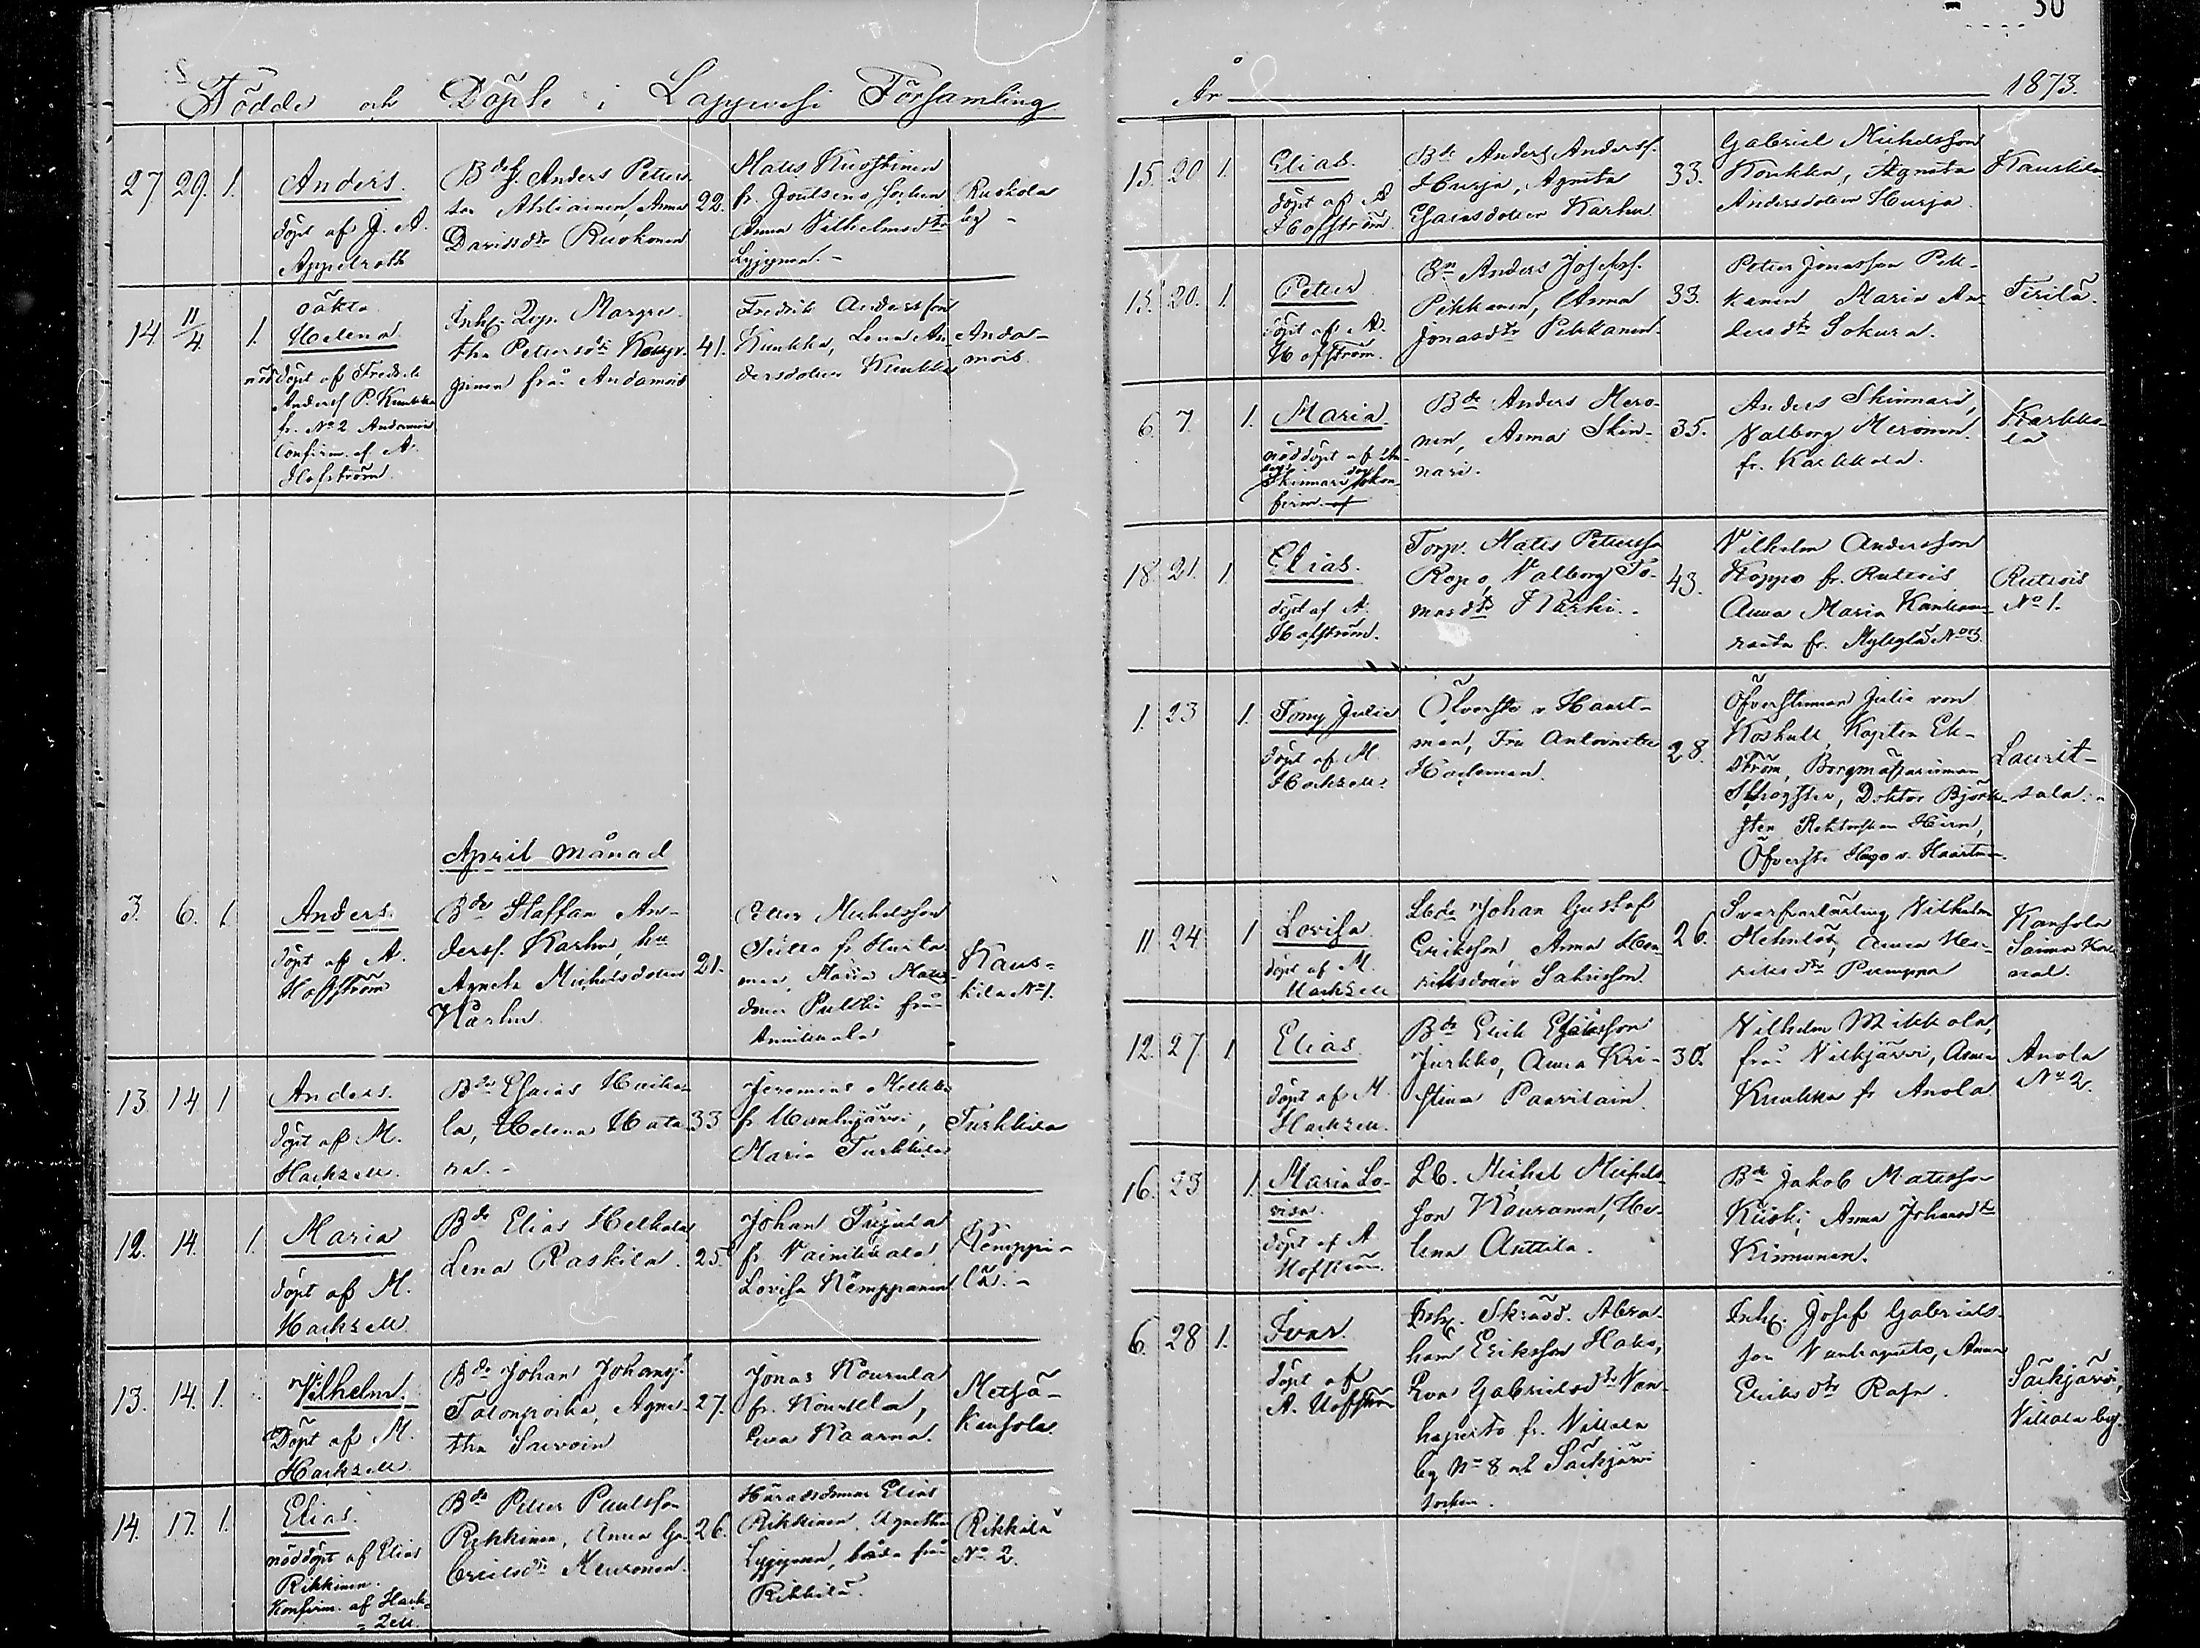 50
Födde och Döpte i Lappvesi Församling
År 1873.
27 29. 1.
Anders.
döpt af J. A.
Appelroth
Bdes. Anders Peters
son Ahtiainen, Anna
Davidsdtr Ruokonen
22.
Mats Kuostinen
fr. Joutseno socken
Anna Vilhelmsdtr
Lyijynen. -
Ruohola
by -
14 11/4 1.
oäkta
Helena
nöddöpt af Fredrik
Anders P. Kunkka
fr. No 2 Andamois
Confirm. af A.
Hofström.
Inh. Margre-
tha Petersdtr
från Andamois
41.
Fredrik Andersson
Kunkka, Lena An-
dersdotter Kunkka
Anda-
mois.
April månad
3. 6. 1.
Anders.
döpt af A.
Hofström
Bde Staffan An-
derss. Karhu, hu
Agneta Michelsdotter
Karhu.
21.
Peter Michelsson
fr.
Maria Mats-
dotter Pulkki från
Kaus-
kila No 1.
13 14 1
Anders.
döpt af M.
Hackzell.
Bde Esaias Haika-
la, Helena Hata-
na. -
33
Jeremias
fr. Munhijärvi,
Maria Turkkila
Turkkila
12. 14. 1.
Maria
döpt af M.
Hackzell.
Bde Elias Helkala
Lena Raskila.
25.
Johan Tujula
fr. Vainikkala
Lovisa Kemppanen
Kemppi-
lä. -
13. 14. 1.
Vilhelm.
Döpt af M.
Hackzell.
Bde Johan Johanss.
Talonpoika, Agne-
tha Suvoin
27.
Jonas Kourula
fr. Kourula,
Eva Kaarna.
Metsä-
Kansola
14. 17. 1.
Elias.
nöddöpt af Elias
Rikkinen.
Konfirm. af Hack-
zell.
Bde Peter Paulsson
Rikkinen, Anna Ga-
brielsdtr Meuronen.
26.
Häradsdomar Elias
Rikkinen, Agnetha
Lyijynen, båda från
Rikkilä.
Rikkilä
No 2.
15. 20 1.
Elias.
döpt af A
Hofström.
Bde Anders Anderss.
Hurja, Agneta
Esaiasdotter Karhu
33.
Gabriel Michelsson
Konkka, Agneta
Andersdotter Hurja.
Kauskila
15. 20. 1.
Petter
döpt af A.
Hofström.
Bn Anders Josefss.
Pekkanen, Anna
Jonasdtr Pekkanen.
33.
Peter Jonasson Pek-
kanen Maria An-
dersdtr Sokura.
Tirilä.
6. 7. 1.
Maria.
nöddöpt af An-
ders
Skinnari, kon-
firm. af
Bde Anders Mero-
nen, Anna Skin-
nari.
35.
Anders Skinnari,
Valborg Meronen.
fr. Karkkola.
Karkko-
la
18 21. 1
Elias.
döpt af A.
Hofström.
Torp. Mats Petersson
Ropo, Valborg To-
masdtr Härki. -
43.
Vilhelm Andersson
Koppo fr. Rutvis
Anna Maria Kankaan-
ranta fr. Myllylä No 3.
Rutvis
No 1.
1. 23 1.
Fony Julia
döpt af M.
Hackzell.
Öfverste v Haart-
man, Fru Antoinette
Haartman.
28.
Öfverstinnan Julia von
Koskull, Kapten Ek-
ström, Borgmästarinnan
Doktor Björk-
sten Rektorskan Hirn,
Öfverste Hugo v. Haartm.
Laurit-
sala. -
11 24 1
Lovisa
döpt af M.
Hackzell
Johan Gustaf
Eriksson, Anna Hen-
riksdotter Sakrisson.
26.
Svarfvarlärling Vilhelm
Anna Hen-
riksdtr Pumppa
Kansola
Saima Ka-
nal.
12. 27 1
Elias
döpt af M.
Hackzell.
Bde Erik Esaiasson
Jurkko, Anna Kri-
stina Paavilain.
30.
Vilhelm Mikkola,
från Vilkjärvi, Anna
Kunkka fr. Anola
Anola
No 2.
16. 23 1.
Maria Lo-
visa.
döpt af A
Hofström.
Lb. Michel Michels-
son Kauranen, He-
lena Anttila.
Bde Jakob Matsson
Kiiski, Anna Johansdtr
Kinnunen.
6. 28 1.
Ivar.
döpt af
A. Hofström
Inh. Skrädd. Abra-
ham Eriksson Hatu,
Eva Gabrielsdtr Van-
hapeito fr. Villala
by No 8 af Säkjärvi
socken.
Inh. Josef Gabriels-
son Vanhapeito, Anna
Eriksdtr Rasa.
Säkjärvi,
Villala by.